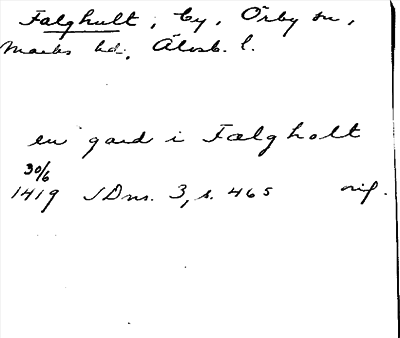 Falghult, by, Örby sn,
Marks hd. Älvsb. l.
en gård i Fælgholt
30/6
1419 SDns. 3, s. 465 orig.